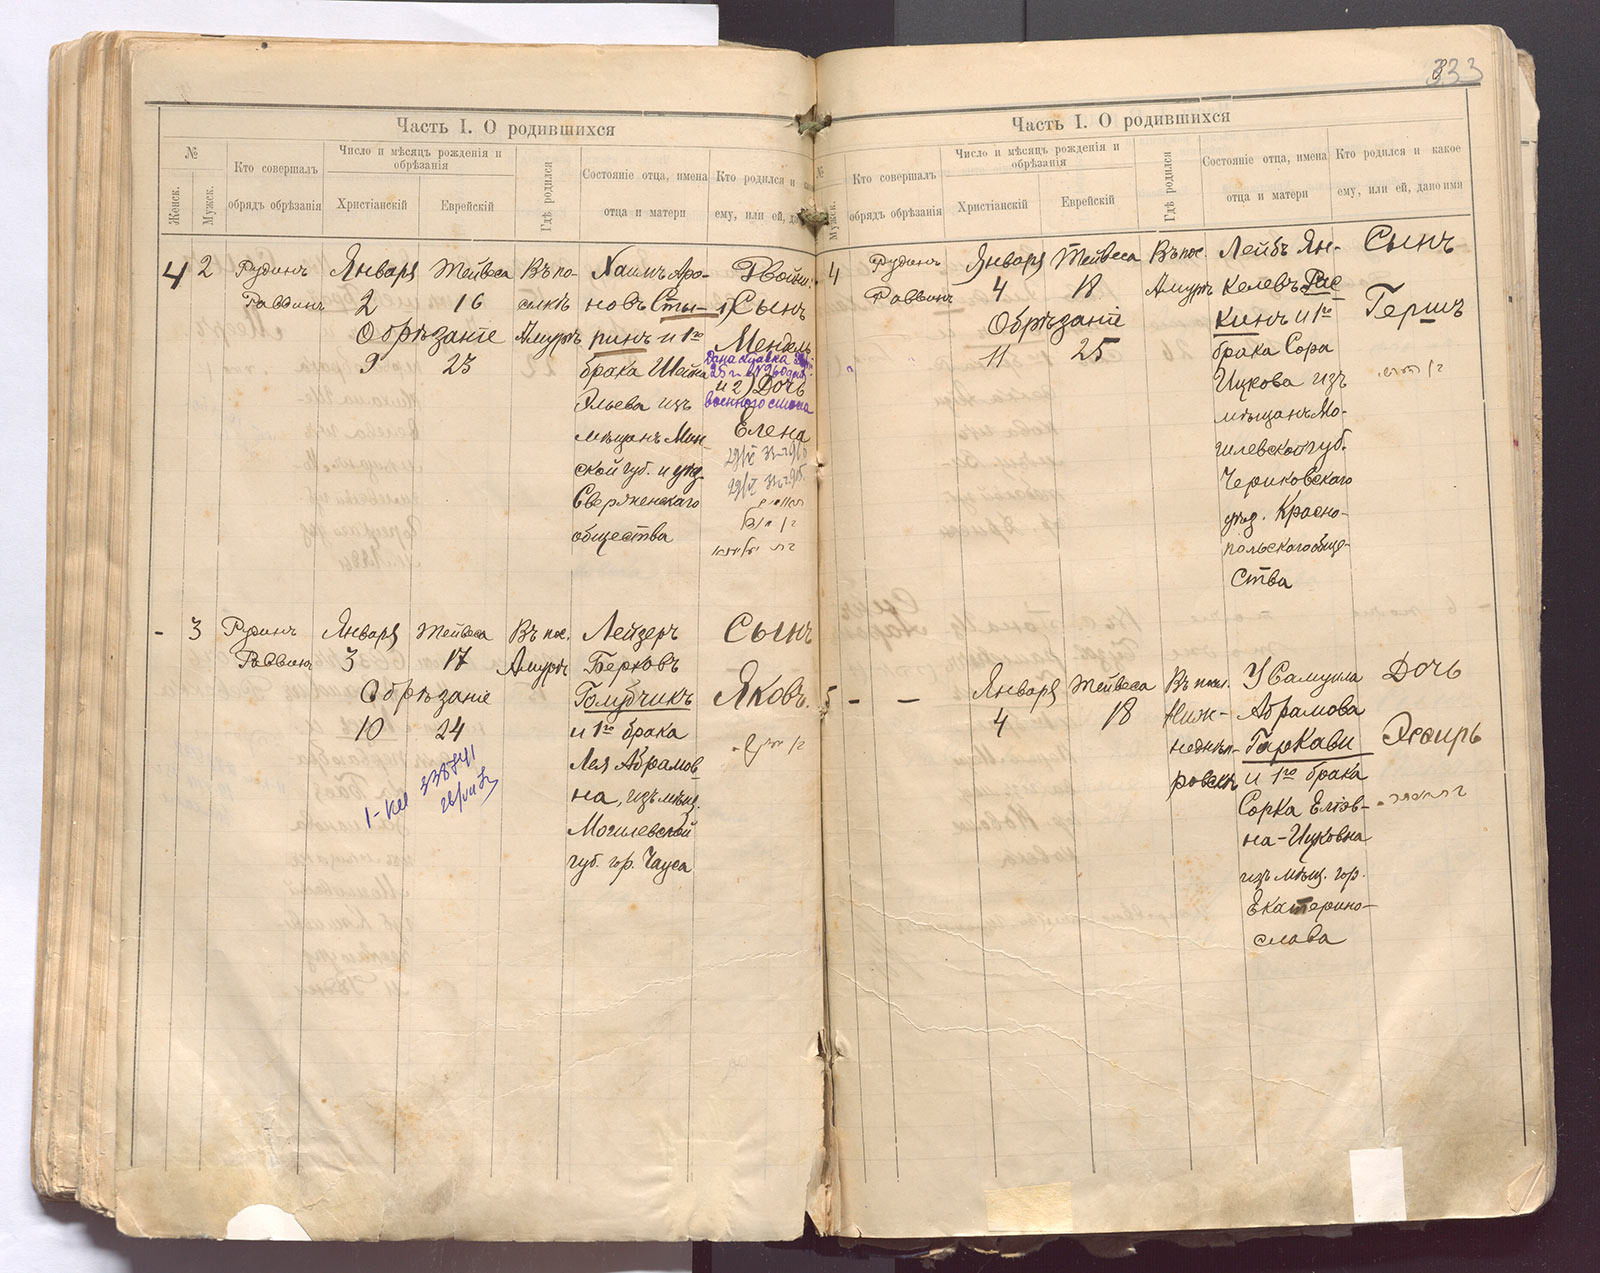 333
Часть I. О родившихся
№
Женск.
Мужск.
Кто совершалъ
обрядъ обрѣзанія
Число и мѣсяцъ рожденія и
обрѣзанія
Христіанскій
Еврейскій
Гдѣ родился
Состояніе отца, имена
отца и матери
Кто родился и
ему, или ей,
4
2
Рудинъ
Раввинъ
Января
2
Обрѣзаніе
9
Тейвеса
16
23
Въ по-
селкѣ
Амуръ
Хаимъ Аро-
новъ Сты-
пинъ и 1го
брака Шейна
Эльева изъ
мѣщанъ Мин
ской губ. и уѣзд.
Сверженскаго
общества
Двойни.
1) Сынъ
Мендель
и 2) Дочь
военного стола
Елена
-
3
Рудинъ
Раввинъ
Января
3
Обрѣзаніе
10
Тейвеса
17
24
Въ пос.
Амуръ
Лейзеръ
Берковъ
Голубчикъ
и 1го брака
Лея Абрамов
на, изъ мѣщ.
Могилевской
губ. гор. Чауса
Сынъ
Яковъ.
338741
Часть I. О родившихся
№
Мужск.
Кто совершалъ
обрядъ обрѣзанія
Число и мѣсяцъ рожденія и
обрѣзанія
Христіанскій
Еврейскій
Гдѣ родился
Состояніе отца, имена
отца и матери
Кто родился и какое
ему, или ей, дано имя
4
Рудинъ
Раввинъ
Января
4
Обрѣзаніе
11
Тейвеса
18
25
Въ пос.
Амуръ
Лейбъ Ян-
келевъ Рас
кинъ и 1го
брака Сора
Ицкова изъ
мѣщанъ Мо-
гилевской губ.
Чериковскаго
уѣзд. Красно-
польскаго обще-
ства
Сынъ
Гершъ
5
-
-
Января
4
Тейвеса
18
Въ пос.
Ниж-
неднѣп-
ровскъ
У Самуила
Абрамова
Гаркави
и 1го брака
Сорка Еліов-
на-Ицковна
изъ мѣщ. гор.
Екатерино-
слава
Дочь
Эсѳирь